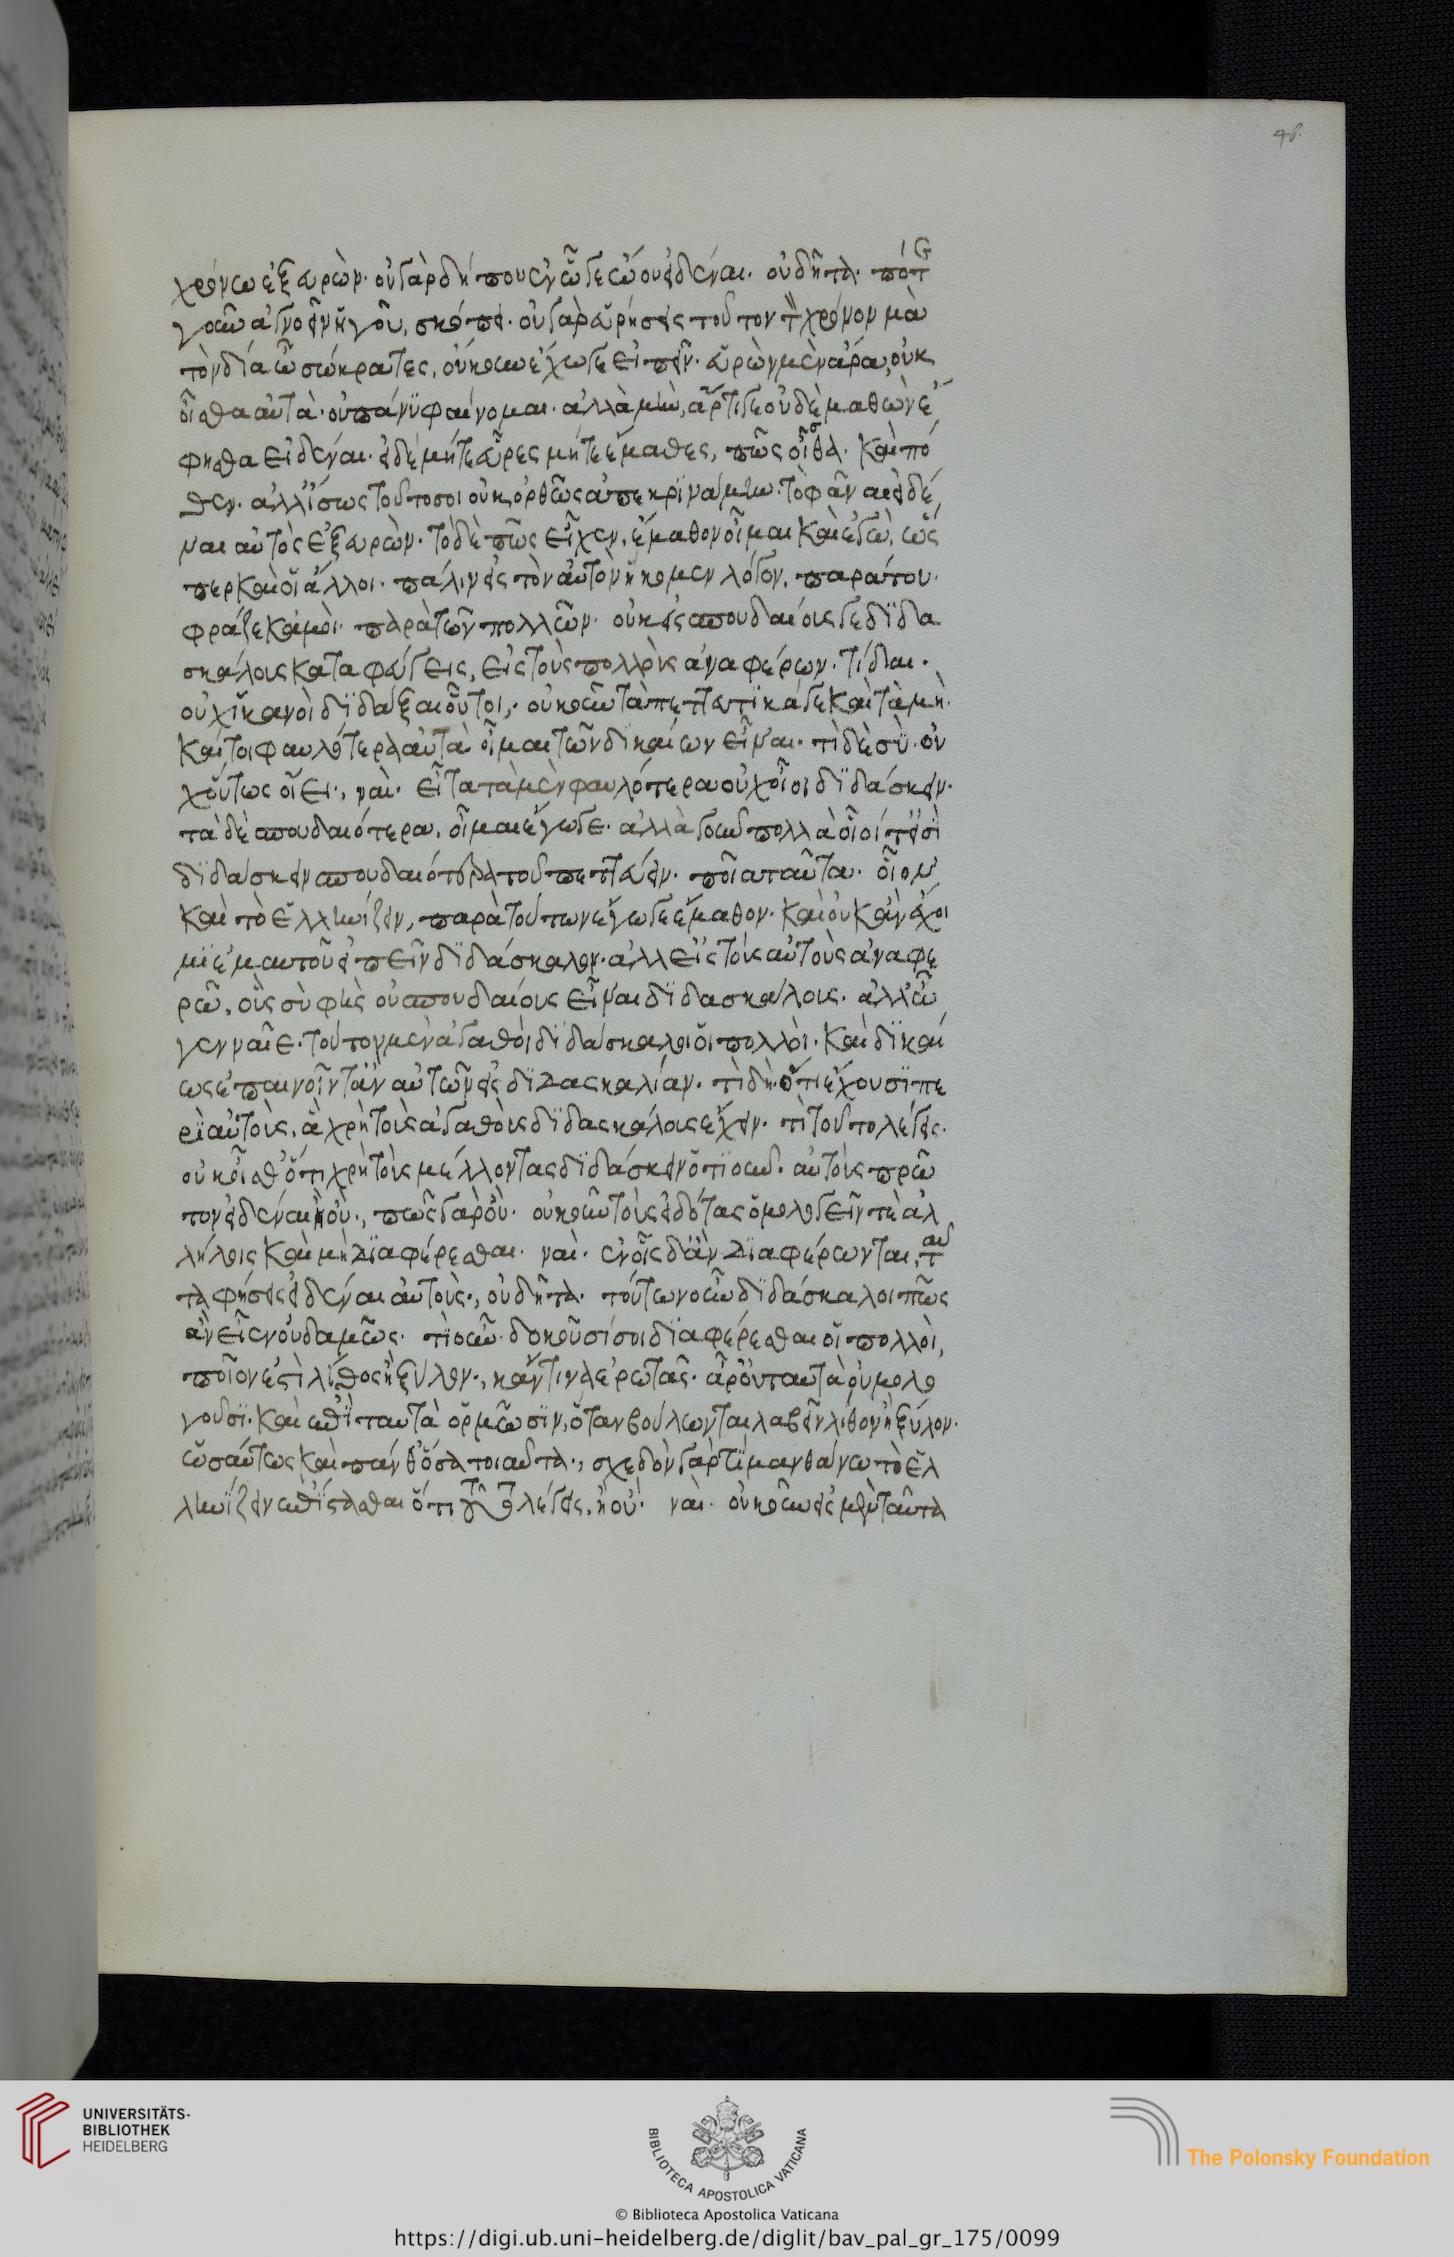 χρόνω ἐξευρὼν· οὐ γὰρ δήπου ἐν ὧ γε ὤου εἰδέναι· οὐ δῆτα· πότε
γοῦν ἀγνοεῖν ἡγοῦ, σκόπει· οὐ γὰρ εὑρήσεις τοῦτον τὸν χρόνον μὰ
τὸν δία ὦ σώκρατες, οὔκουν ἔχω γε εἰπεῖν· εὑρὼν μὲν ἄρα, οὐκ
οἶσθα αὐτὰ· οὐ πάνϋ φαίνομαι· ἀλλὰ μὴν, ἄρτι γε οὐδὲ μαθὼν ἔ
φησθα εἰδέναι· εἰ δὲ μήτε εὗρες μήτε ἔμαθες, πῶς οἶσθα· καὶ πό
θεν· ἀλλ' ἴσως τοῦτο σοι οὐκ ὀρθῶς ἀπεκρϊνάμην· τὸ φάναι εἰδέ
ναι αὐτὸς ἐξευρὼν· τὸ δὲ πῶς εἶχεν, ἔμαθον οἶμαι καὶ ἐγὼ, ὥς
περ καὶ οἱ ἄλλοι· πάλιν εἰς τὸν αὐτὸν ἥκομεν λόγον, παρὰ του·
φράζε κἀμοὶ· παρὰ τῶν πολλῶν· οὐκ εἰς σπουδαίους γε δϊδα
σκάλους καταφεύγεις, εἰς τοὺς πολλοὺς ἀναφέρων· τί δαι·
οὐχ ἱκανοὶ δϊδάξαι οὗτοι, οὔκουν τὰ πεττευτϊκά γε καὶ τὰ μὴ·
καί τοι φαυλότερα αὐτὰ οἶμαι τῶν δικαίων εἶναι· τὶ δὲ σὺ· οὐ
χ οὕτως οἴει, ναὶ· εἶτα τὰ μὲν φαυλότερα οὐχ οἷοι δϊδάσκειν·
τὰ δὲ σπουδαιότερα, οἶμαι ἔγωγε· ἀλλὰ γοῦν πολλὰ οἷοί τ' εἰσὶ
δϊδάσκειν σπουδαιότερα τοῦ πεττεύειν· ποῖα ταῦτα· οἷον
καὶ τὸ ἑλληνίζειν, παρὰ τούτων ἔγωγε ἔμαθον· καὶ οὐκ ἂν ἔχοι
μϊ ἐμαυτοῦ εἰπεῖν δϊδάσκαλον· ἀλλ' εἰς τοὺς αὐτοὺς ἀναφέ
ρω, οὓς σὺ φῂς οὐ σπουδαίους εἶναι δϊδασκάλους· ἀλλ' ὦ
γενναῖε· τούτου μὲν ἀγαθοὶ δϊδάσκαλοι οἱ πολλοὶ· καὶ δϊκαί
ως ἐπαινοῖντ' ἂν αὐτῶν εἰς δϊδασκαλίαν· τὶ δὴ· ὅτι ἔχουσϊ πε
ρὶ αὐτοὺς, ἃ χρὴ τοὺς ἀγαθοὺς δϊδασκάλους ἔχειν· τὶ τοῦτο λέγεις·
οὐκ οἶσθ' ὅτι χρὴ τοὺς μέλλοντας δϊδάσκειν ὁτϊοῦν· αὐτοὺς πρῶ
τον εἰδέναι ἢ οὒ, πῶς γὰρ οὒ· οὐκοῦν τοὺς εἰδότας ὁμολογεῖν τὲ ἀλ
λήλοις καὶ μὴ δϊαφέρεσθαι· ναὶ· ἐν οἷς δ' ἂν δϊαφέρωνται, ταῦ
τα φήσεις εἰδέναι αὐτοὺς, οὐ δῆτα· τούτων οὖν δϊδάσκαλοι πῶς
ἂν εἶεν οὐδαμῶς· τὶ οὖν· δοκοῦσί σοι δϊαφέρεσθαι οἱ πολλοὶ,
ποῖον ἐστὶ λίθος ἢ ξύλον, κἄν τινα ἐρωτᾶς· ἆρ' οὐ ταυτὰ ὁμολο
γοῦσϊ· καὶ ἐπὶ ταυτὰ ὁρμῶσϊν, ὅταν βούλωνται λαβεῖν λίθον ἢ ξύλον·
ὡσαύτως καὶ πάνθ' ὅσα τοιαῦτα, σχεδὸν γὰρ τϊ μανθάνω τὸ ἑλ
ληνίζειν ἐπίστασθαι ὅτι τοῦτο λέγεις, ἢ οὔ· ναὶ· οὐκοῦν εἰς μὲν ταῦτα
UNIVERSITÄTS-
BIBLIOTHEK
HEIDELBERG
BIBLIOTECA APOSTOLICA VATICANA
The Polonsky Foundation
© Biblioteca Apostolica Vaticana
https://digi.ub.uni-heidelberg.de/diglit/bav_pal_gr_175/0099